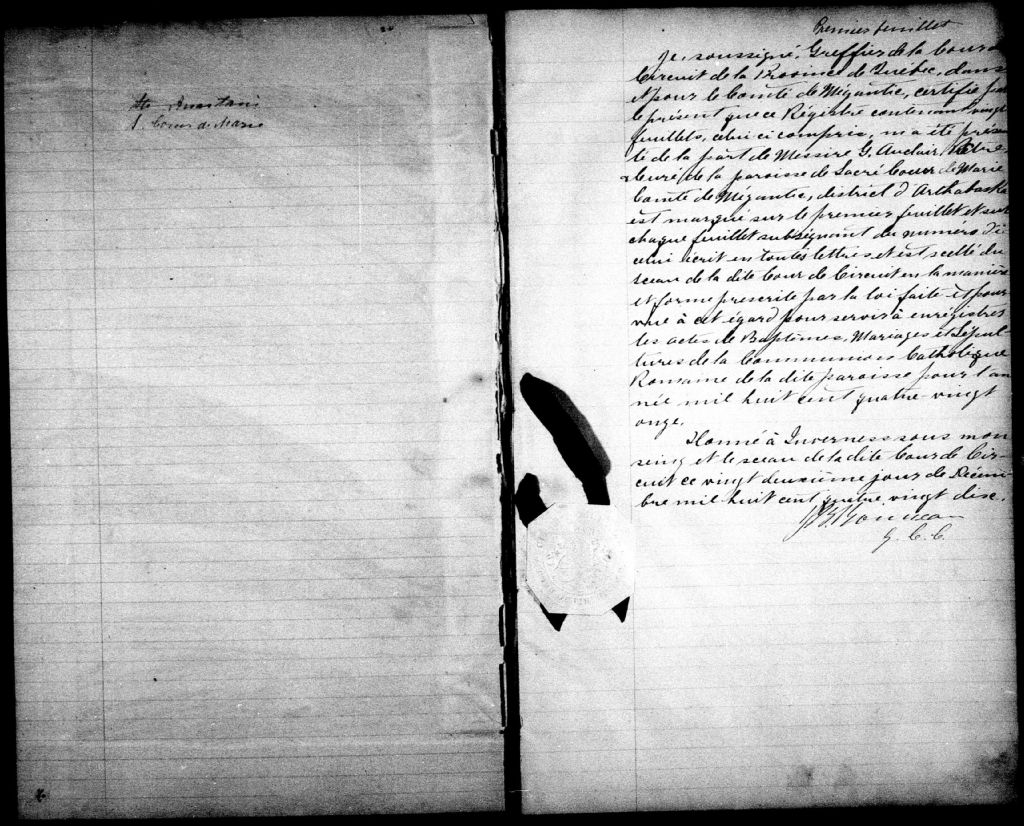 S. Cœur de Marie
Premier feuillet
Je, soussigné, Greffier de la Cour de
Circuit de la Province de Québec, dans
et pour le Comté de Mégantic, certifie par
le présent que ce Régistre contenant vingt
feuillets, celui ci compris, m'a été présen
té de la part de Messire G. Auclair, Ptre
Curé de la paroisse de Sacré Cœur de Marie
Comté de Mégantic, district d'Arthabaska
est marqué sur le premier feuillet et sur
chaque feuillet subséquant du numéro d'i
celui écrit en toutes lettres et est scellé du
sceau de la dite Cour de Circuit en la manière
et forme prescrite par la loi faite et pour
vue à cet égard pour servir à enrégistrer
les actes de Baptêmes, Mariages et Sépul-
tures de la Communion Catholique
Romaine de la dite paroisse pour l'an
née mil huit cent quatre-vingt
onze.
Donné à Inverness sous mon
seing et le sceau de la dite Cour de Cir-
cuit ce vingt deuxième jour de Décem
bre mil huit cent quatre vingt dix.
G. C. C.